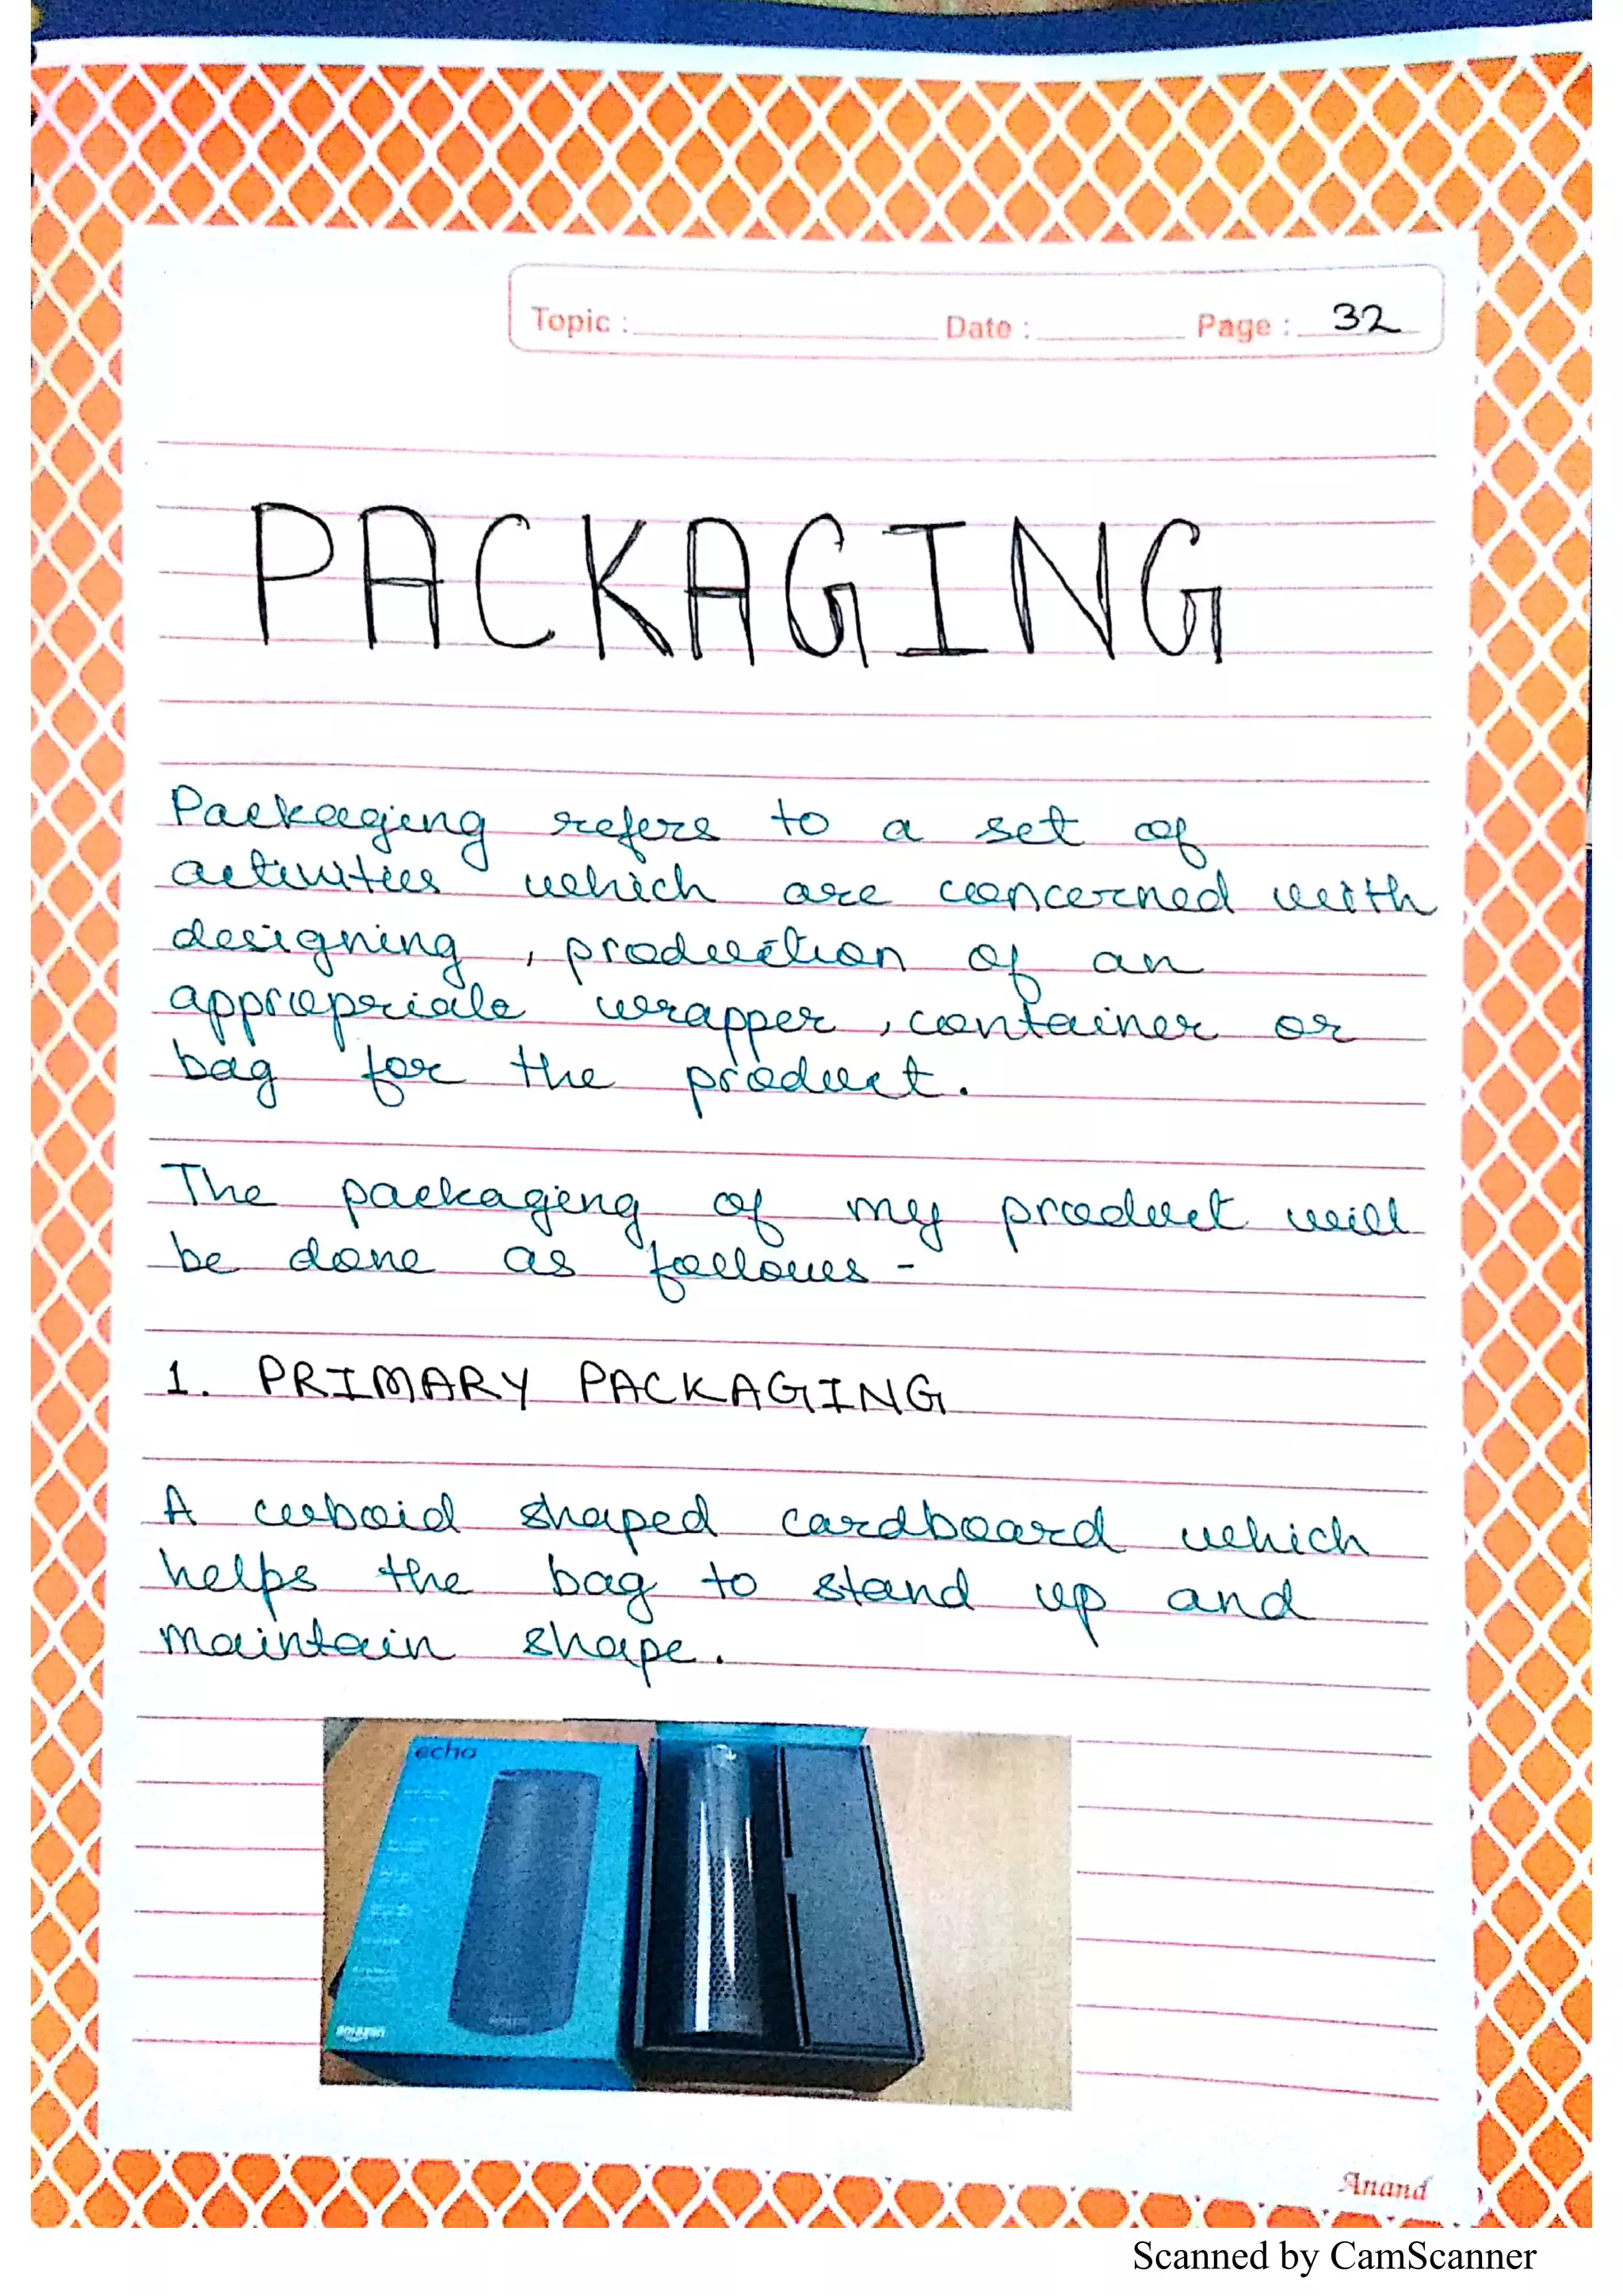 Topic : Date : Page : 32
PACKAGING
Packaging refers to a set of
activities which are concerned with
designing , production of an
appropriate wrapper , container or
bag for the product .
The packaging of my product will
be done as follows -
1. PRIMARY PACKAGING
A cuboid shaped cardboard which
helps the bag to stand up and
maintain shape .
echo
amazon
Anand
Scanned by CamScanner